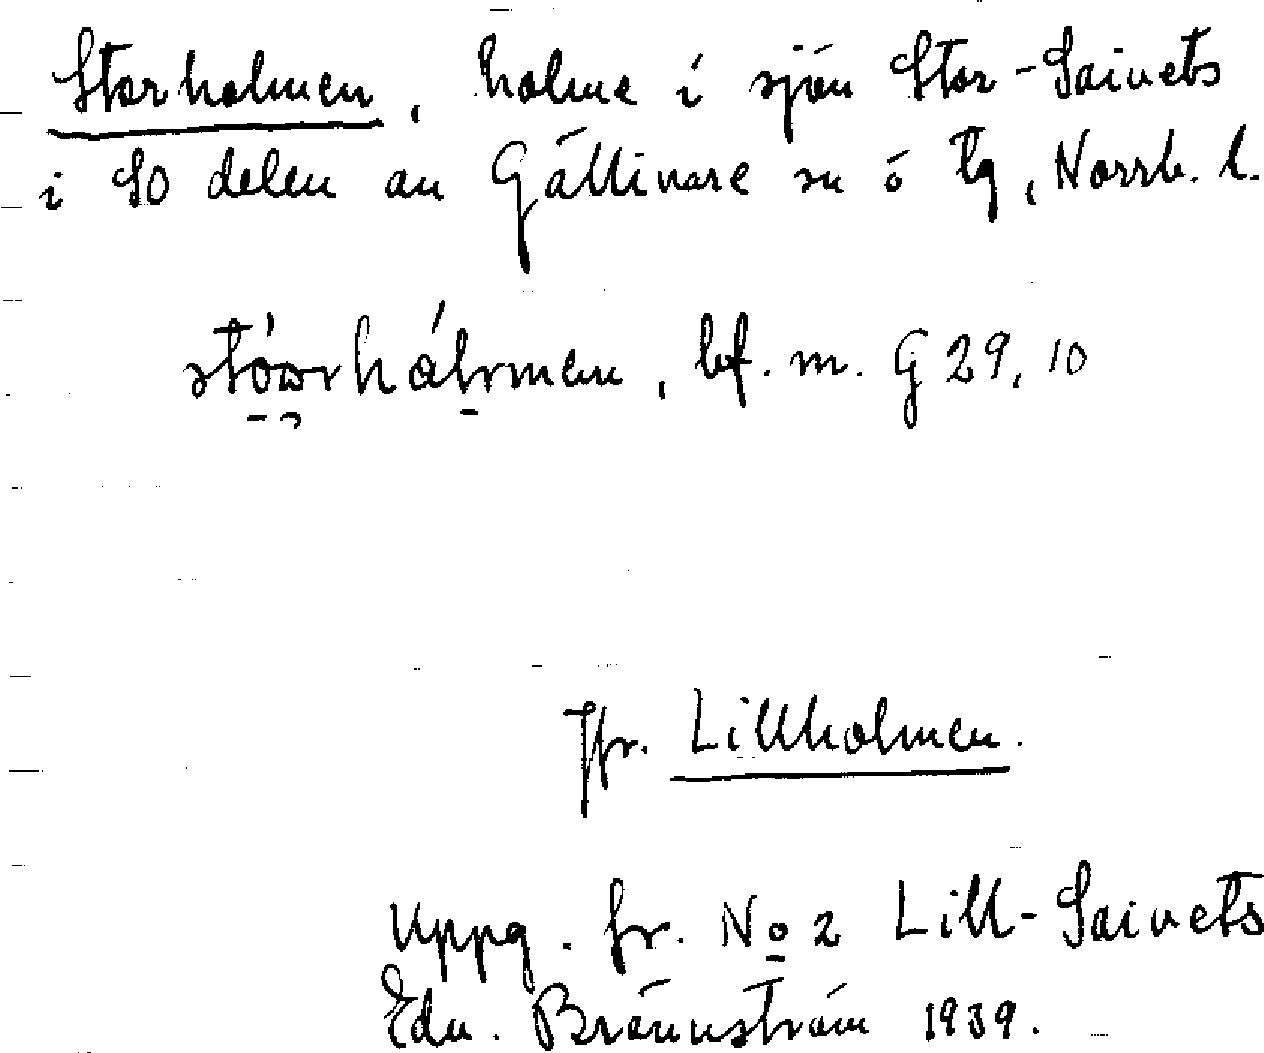 Storholmen, holme i sjön Stor-Saivets
i SO delen av Gällivare sn o tg, Norrb. l.
bf. m. G 29, 10
Jfr. Lillholmen.
Uppg. fr. No 2 Lill-Saivets
Edv. Brännström 1939.